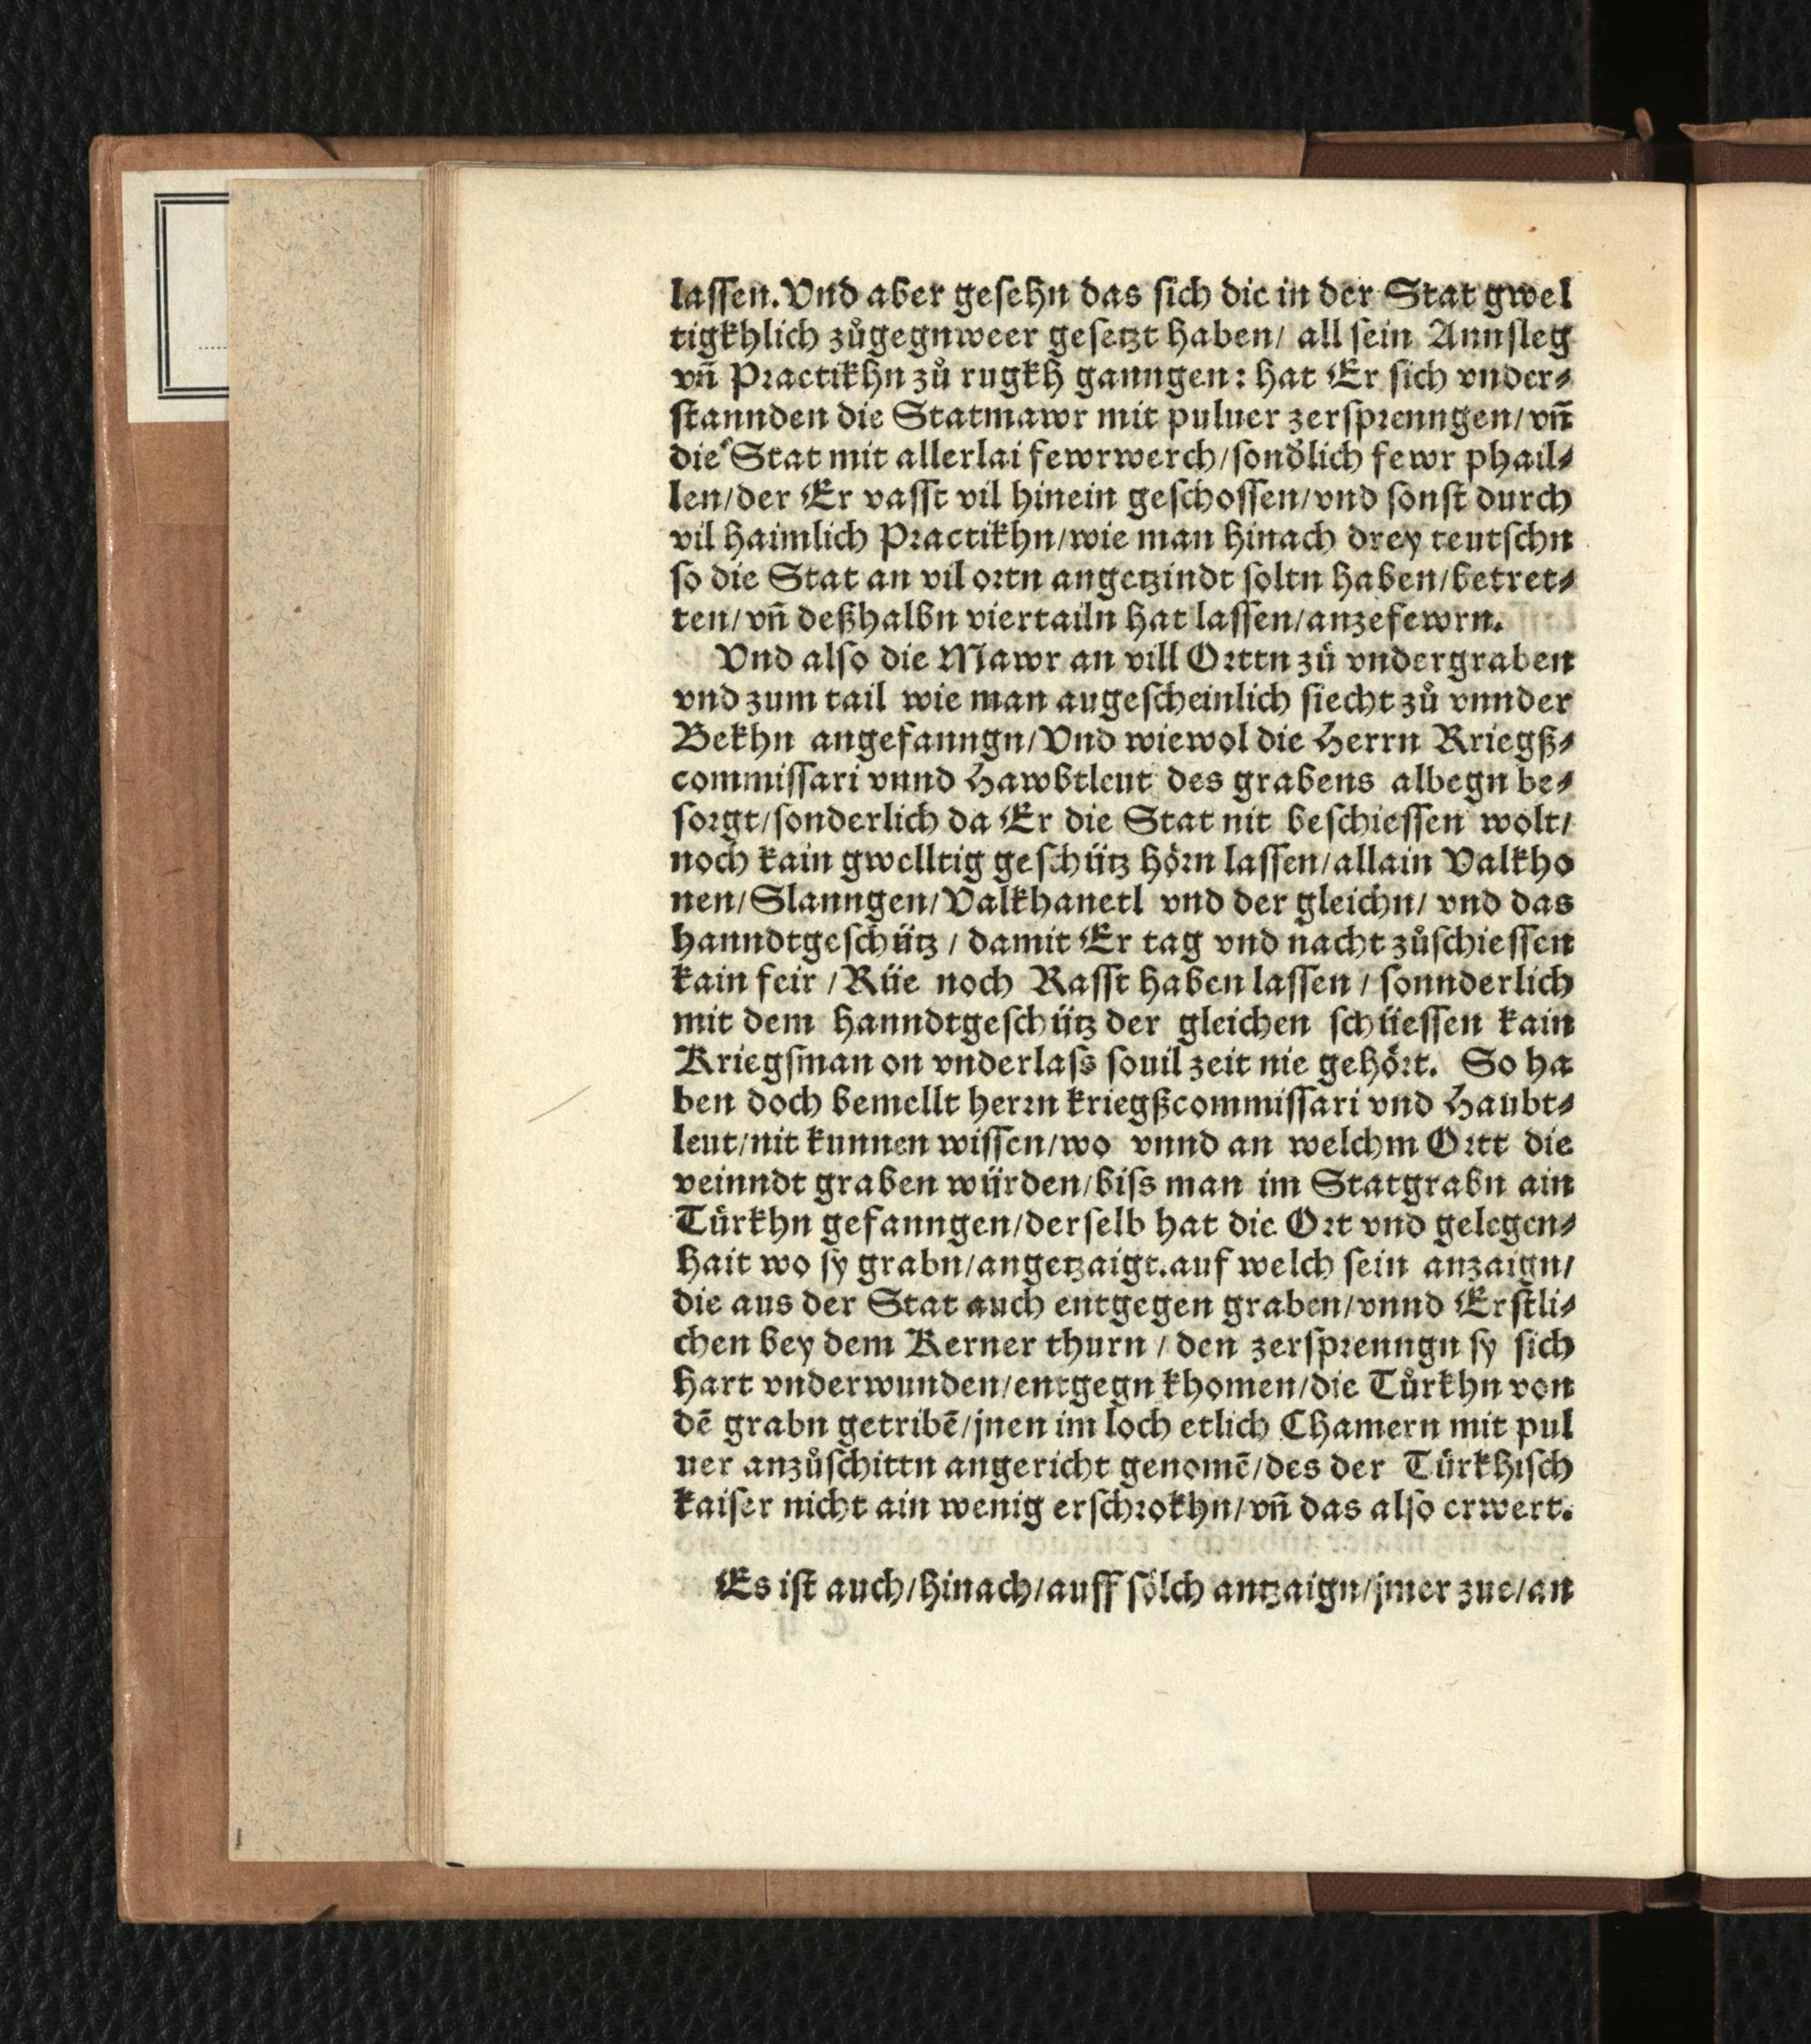 laſſen. Vnd aber geſehn das ſich die in der Stat gwel
tigkhlich zůgegnweer geſetzt haben/ all ſein Annſleg
vñ Practikhn zů rugkh ganngen: hat Er ſich vnder⸗
ſtannden die Statmawr mit puluer zerſprenngen/ vñ
die Stat mit allerlai fewrwerch/ ſondͦlich fewr phail⸗
len/ der Er vaſſt vil hinein geſchoſſen/ vnd ſonſt durch
vil haimlich Practikhn/ wie man hinach drey teutſchn
ſo die Stat an vil ortn angetzindt ſoltn haben/ betret⸗
ten/ vñ deßhalbn viertailn hat laſſen/ anzefewrn.
Vnd alſo die Mawr an vill Orttn zů vndergraben
vnd zum tail wie man augeſcheinlich ſiecht zů vnnder
Bekhn angefanngn/ Vnd wiewol die Herrn Kriegß⸗
commiſſari vnnd Hawbtleut des grabens albegn be⸗
ſorgt/ ſonderlich da Er die Stat nit beſchieſſen wolt/
noch kain gwelltig geſchütz hörn laſſen/ allain Valkho
nen/ Slanngen/ Valkhanetl vnd der gleichn/ vnd das
hanndtgeſchütz / damit Er tag vnd nacht zůſchieſſen
kain feir / Rüe noch Raſſt haben laſſen / ſonnderlich
mit dem hanndtgeſchütz der gleichen ſchüeſſen kain
Kriegſman on vnderlaſs ſouil zeit nie gehört. So ha
ben doch bemellt herrn kriegßcommiſſari vnd Haubt⸗
leut/ nit kunnen wiſſen/ wo vnnd an welchm Ortt die
veinndt graben würden/ biſs man im Statgrabn ain
Türkhn gefanngen/ derſelb hat die Ort vnd gelegen⸗
hait wo ſy grabn/ angetzaigt. auf welch ſein anzaign/
die aus der Stat auch entgegen graben/ vnnd Erſtli⸗
chen bey dem Kerner thurn / den zerſprenngn ſy ſich
hart vnderwunden/ entgegn khomen/ die Tůrkhn von
dē grabn getribē/ jnen im loch etlich Chamern mit pul
uer anzůſchittn angericht genomē/ des der Türkhiſch
kaiſer nicht ain wenig erſchrokhn/ vñ das alſo erwert.
Es iſt auch/ hinach/ auff ſölch antzaign/ jmer zue/ an